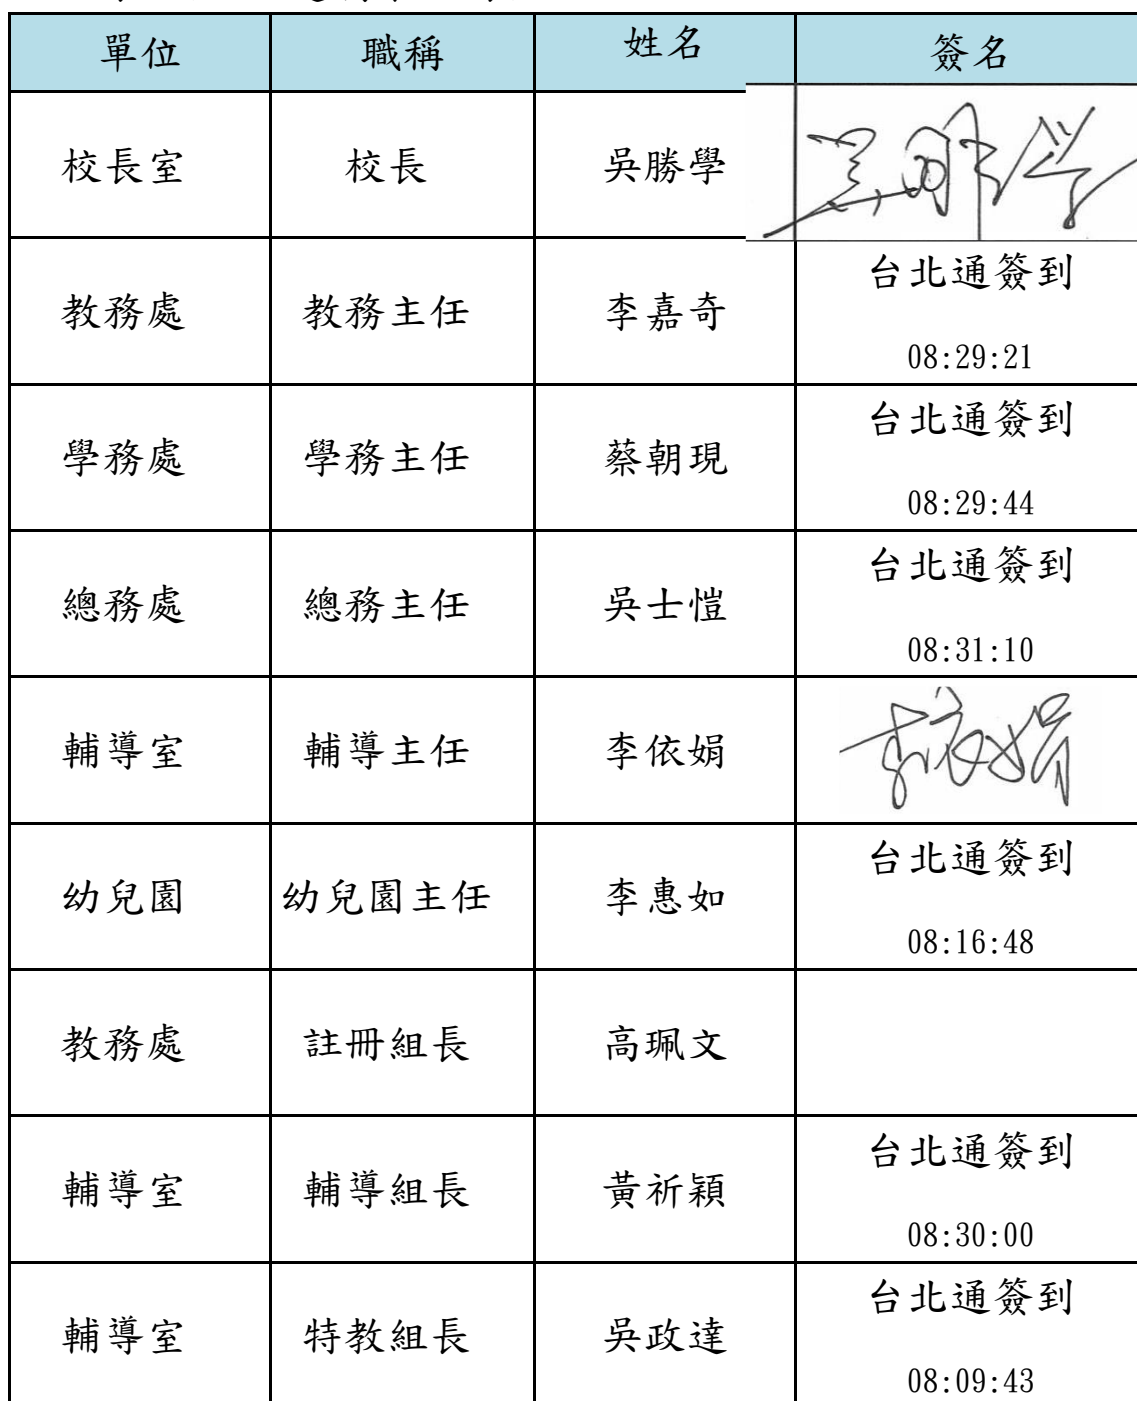 單位 職稱 姓名 簽名
校長室 校長 吳勝學 吳勝学
教務處 教務主任 李嘉奇 台北通簽到
08:29:21
學務處 學務主任 蔡朝現 台北通簽到
08:29:44
總務處 總務主任 吳士愷 台北通簽到
08:31:10
輔導室 輔導主任 李依娟 李依娟
幼兒園 幼兒園主任 李惠如 台北通簽到
08:16:48
教務處 註冊組長 高珮文
輔導室 輔導組長 黃祈穎 台北通簽到
08:30:00
輔導室 特教組長 吳政達 台北通簽到
08:09:43